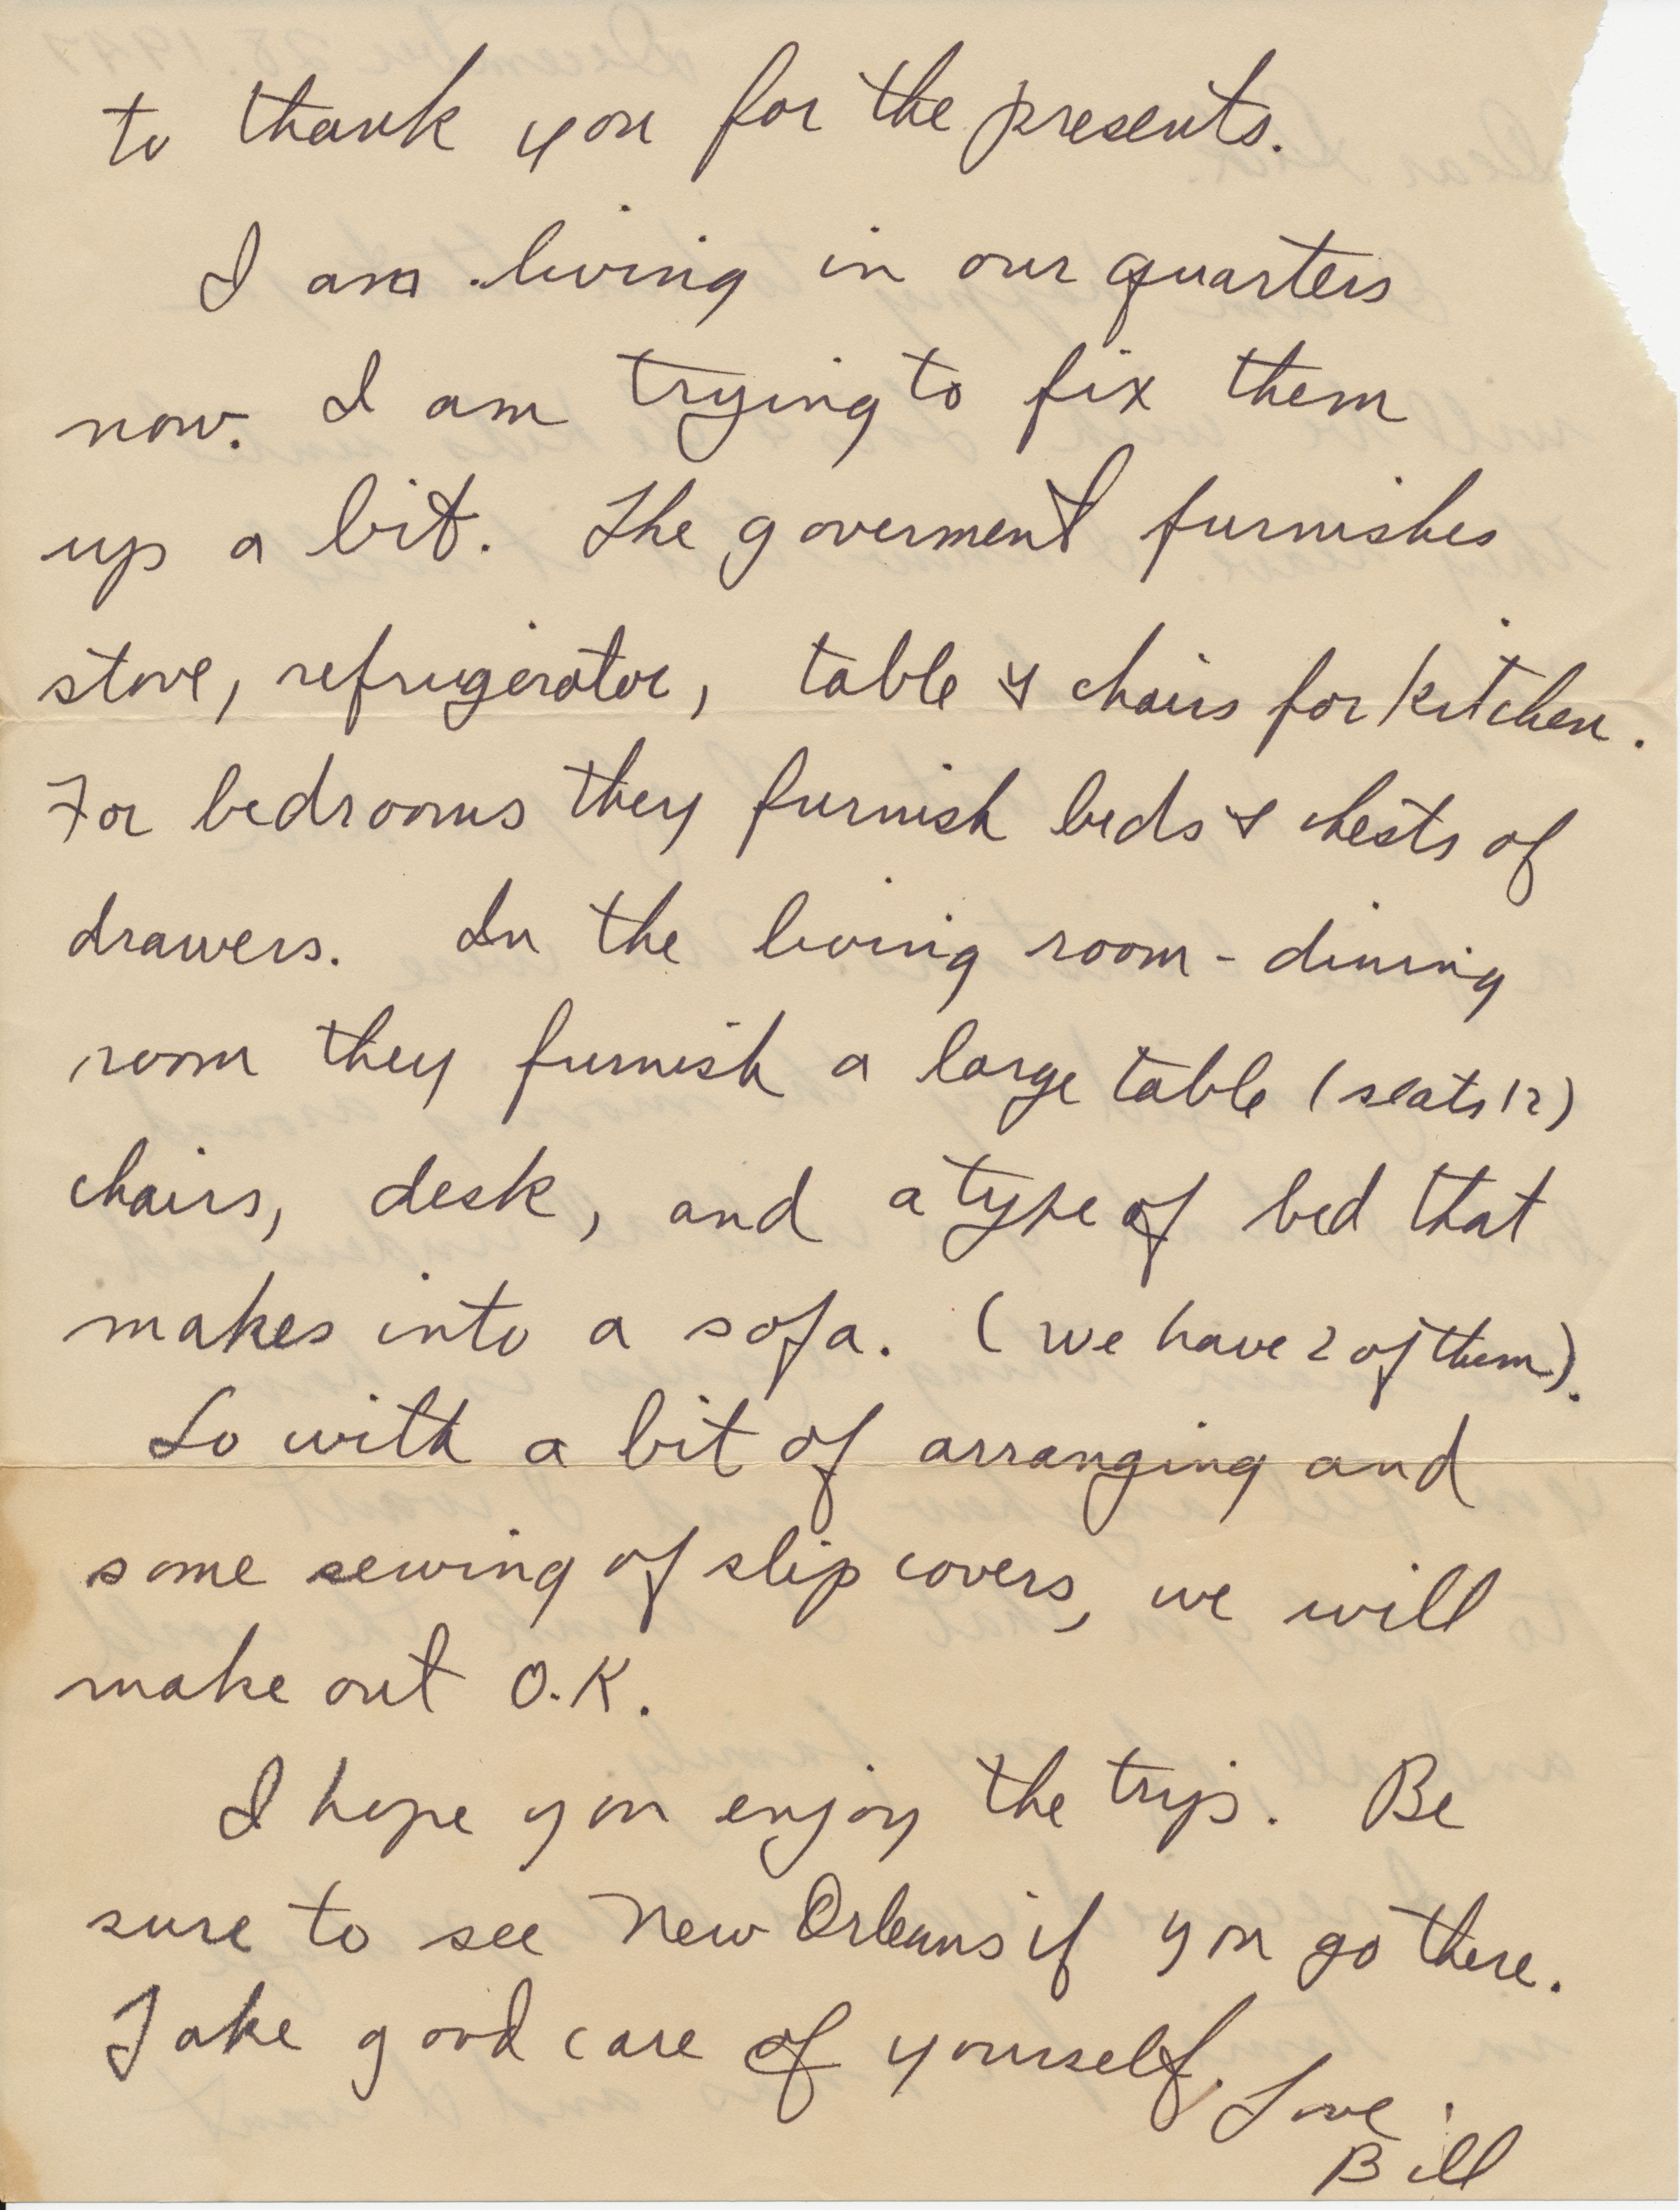 to thank you for the presents.
I am living in our quarters
now. I am trying to fix them
up a bit. The goverment furnishes
stove, refrugerator, table & chairs for kitchen.
For bedrooms they furnish beds & chests of
drawers. In the living room - dining
room they furnish a large table (seats 12)
chairs, desk, and a type of bed that
makes into a sofa. (we have 2 of them).
So with a bit of arranging and
some sewing of slip covers, we will
make out O.K.
I hope you enjoy the trip. Be
sure to see New Orleans if you go there.
Take good care of yourself.
Love
Bill